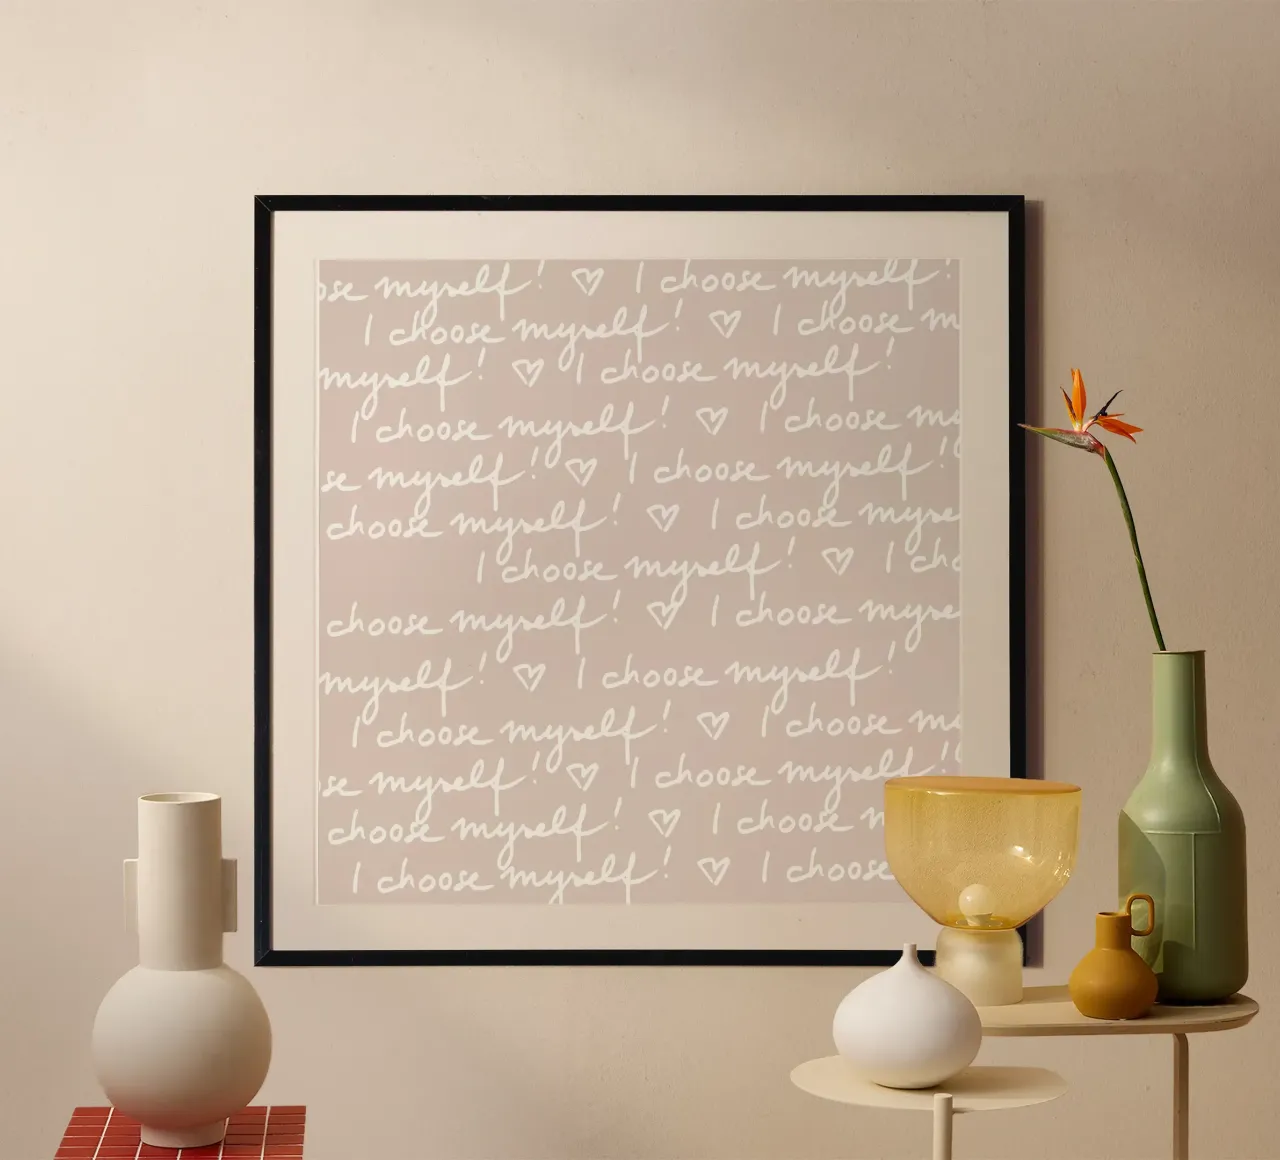 ose myself! ♡ I choose myself!
I choose myself! ♡ I choose m
myself! ♡ I choose myself!
I choose myself! ♡ I choose my
se myself! ♡ I choose myself!
choose myself! ♡ I choose myse
I choose myself! ♡ I cho
choose myself! ♡ I choose myse
myself! ♡ I choose myself!
I choose myself! ♡ I choose my
se myself! ♡ I choose myself!
choose myself! ♡ I choose m
I choose myself! ♡ I choose